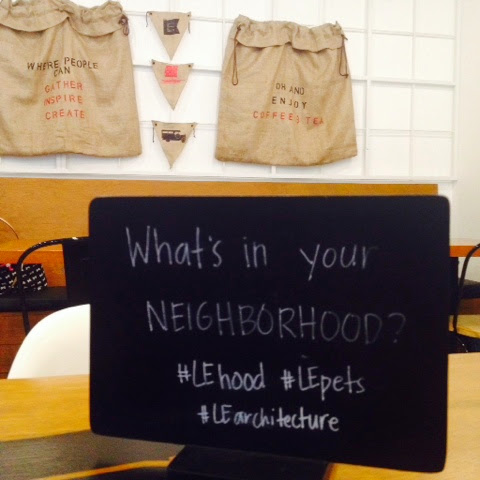 WHERE PEOPLE
CAN
GATHER
INSPIRE
CREATE
E
OH AND
ENJOY
COFFEE & TEA
What's in your
NEIGHBORHOOD?
#LEhood #LEpets
#LEarchitecture